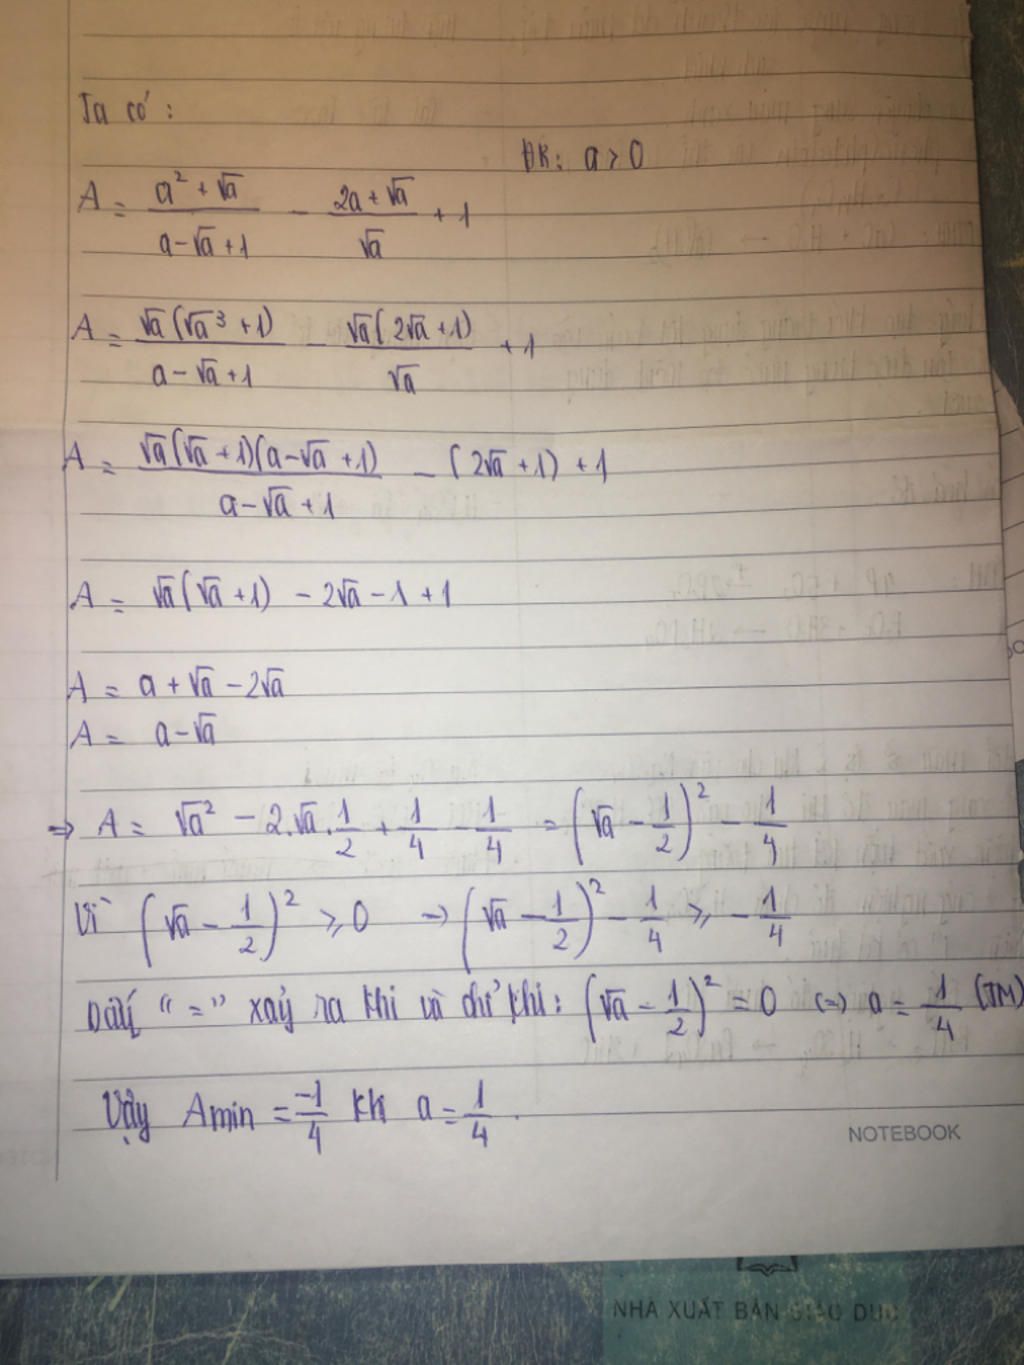 Ta có :
ĐK: a > 0
A = \frac{a² + √a}{a - √a + 1} - \frac{2a + √a}{√a} + 1
A = \frac{√a(√a³ + 1)}{a - √a + 1} - \frac{√a(2√a + 1)}{√a} + 1
A = \frac{√a(√a + 1)(a - √a + 1)}{a - √a + 1} - (2√a + 1) + 1
A = √a(√a + 1) - 2√a - 1 + 1
A = a + √a - 2√a
A = a - √a
⇒ A = √a² - 2.√a.\frac{1}{2} + \frac{1}{4} - \frac{1}{4} = (√a - \frac{1}{2})² - \frac{1}{4}
Vì (√a - \frac{1}{2})² ≥ 0 → (√a - \frac{1}{2})² - \frac{1}{4} ≥ -\frac{1}{4}
Dấu "=" xảy ra khi và chỉ khi: (√a - \frac{1}{2})² = 0 (=) a = \frac{1}{4} (TM)
Vậy Amin = \frac{-1}{4} kh a = \frac{1}{4}.
NOTEBOOK
NHÀ XUẤT BẢN GIÁO DỤC